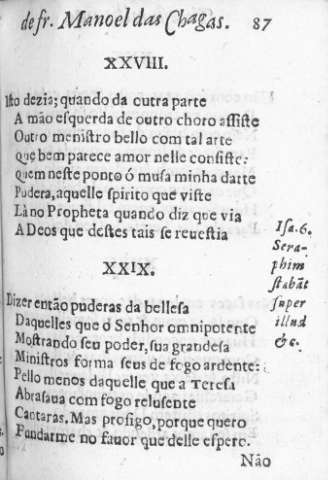 de fr. Manoel das Chagas. 87
XXVIII.
Isto dezia; quando da outra parte
A mão esquerda de outro choro assiste
Outro menistro bello com tal arte
Que bem parece amor nelle consiste:
Quem neste ponto ó musa minha darte
Pudera, aquelle spirito que viste
Là no Propheta quando diz que via
A Deos que destes tais se revestia
Isa. 6.
Sera-
phim
stabãt
super
illud
&c.
XXIX.
Dizer então puderas da bellesa
Daquelles que o Senhor omnipotente
Mostrando seu poder, sua grandesa
Ministros forma seus de fogo ardente:
Pello menos daquelle que a Teresa
Abrasaua com fogo relusente
Cantaras. Mas prosigo, porque quero
Fundarme no fauor que delle espero.
Não